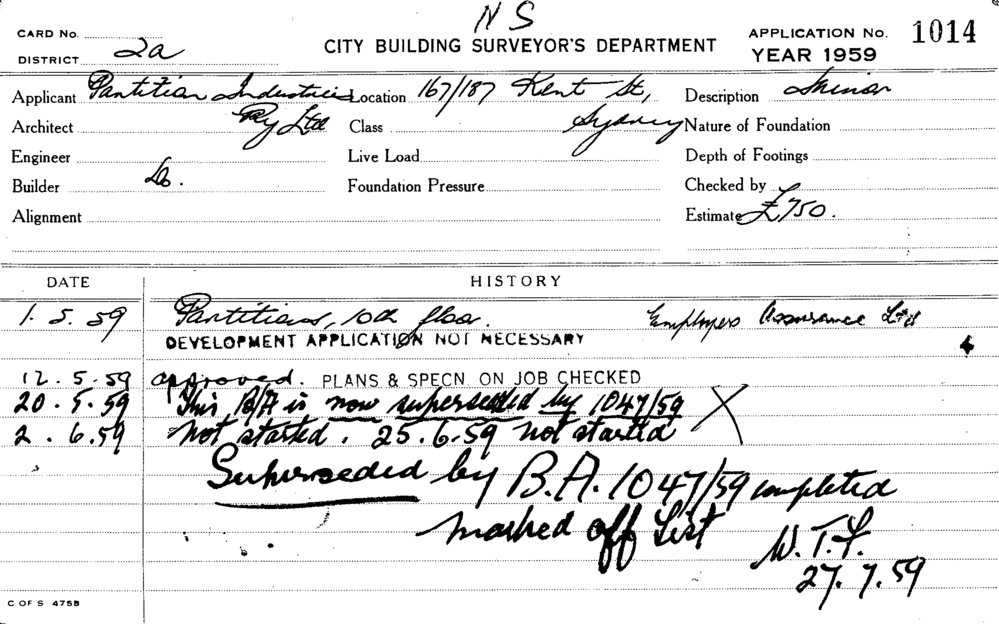 NS
CARD No.
CITY BUILDING SURVEYOR'S DEPARTMENT
APPLICATION No. 1014
DISTRICT 2a
YEAR 1959
Applicant Partition Industries Pty Ltd
Location 167/187 Kent St, Sydney
Description Minor
Architect
Class
Nature of Foundation
Engineer
Live Load
Depth of Footings
Builder Do.
Foundation Pressure
Checked by
Alignment
Estimate £750.
DATE HISTORY
1. 5. 59 Partitions, 10th floor. Employers Assurance Ltd
DEVELOPMENT APPLICATION NOT NECESSARY
12. 5. 59 approved. PLANS & SPECN ON JOB CHECKED
20. 5. 59 This B/A is now superseded by 1047/59 X
2. 6. 59 Not started. 25.6.59 not started
Superseded by B.A. 1047/59 completed
marked off List
W.T.F.
27. 7. 59
C OF S 475B